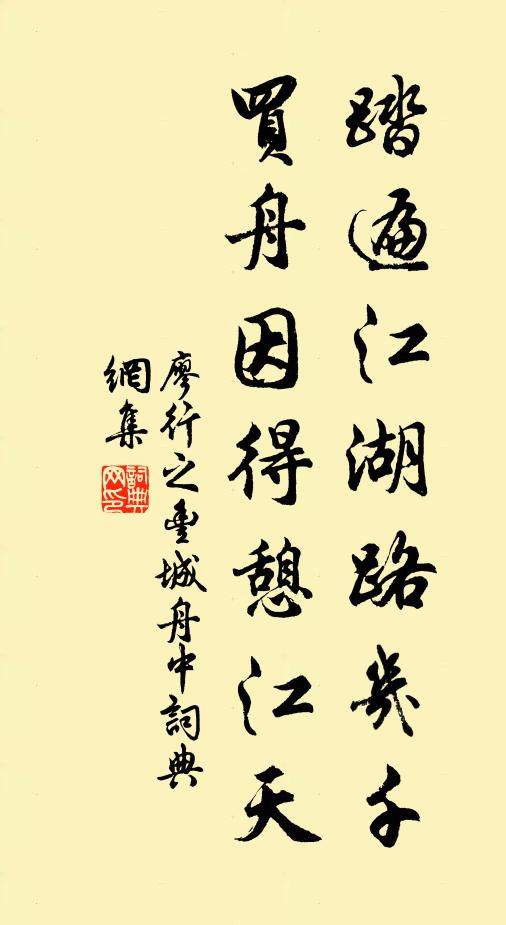 踏遍江湖路幾千
買舟因得憩江天
廖行之豐城舟中詞典
網集
詞典
网印